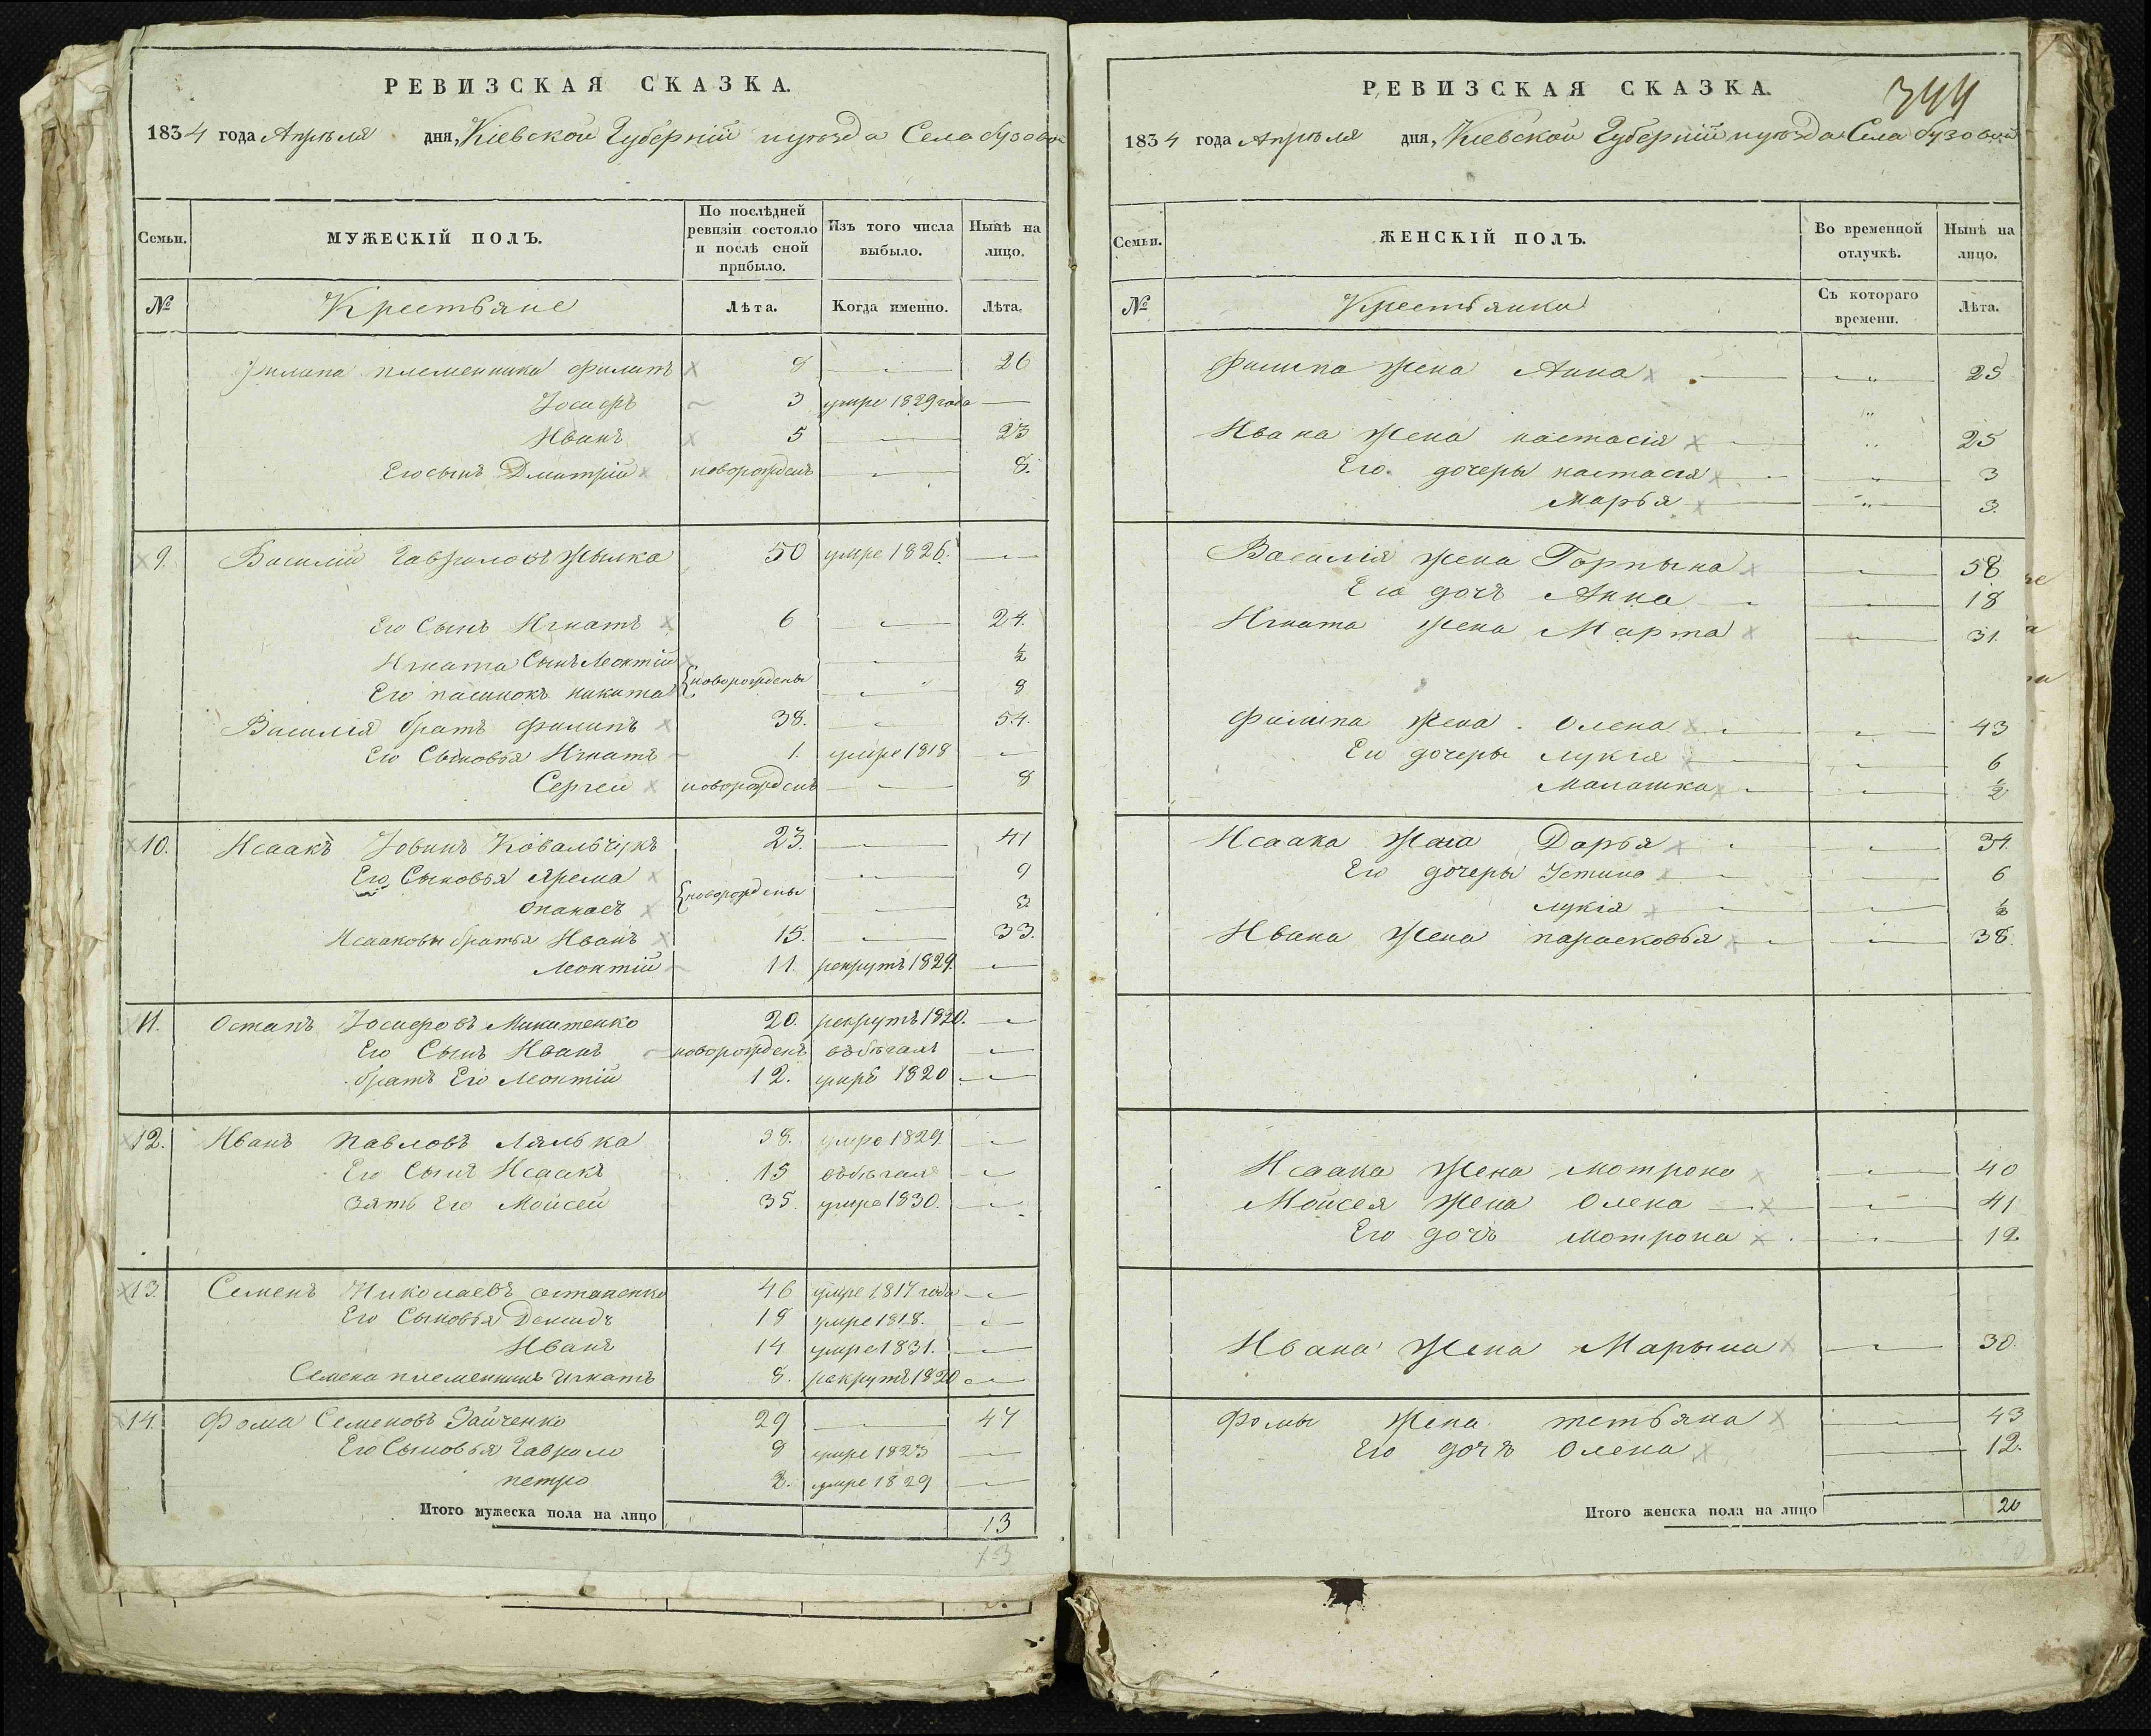 РЕВИЗСКАЯ СКАЗКА.
1834 года Апрѣля дня, Кіевской Губерніи и уѣзда Села бузовой
Семьи.
МУЖЕСКІЙ ПОЛЪ.
По послѣдней ревизіи состояло и послѣ оной прибыло.
Изъ того числа выбыло.
Нынѣ на лицо.
№
Крестьяне
Лѣта.
Когда именно.
Лѣта.
Филипа племенника Филипъ 8 26
Іосифъ 3 умре 1829 года
Иванъ 5 23
Его сынъ Дмитрій новорожденъ 8.
9. Василій Гавриловъ Жылка 50 умре 1826.
Его Сынъ Игнатъ 6 24.
Игната Сынъ Леонтій ½
Его пасинокъ никита новорождены 8
Василія братъ Филипъ 38. 54.
Его Сыновья Игнатъ 1. умре 1818
Сергеи новорожденъ 8
10. Исаакъ Іовинъ Ковальчукъ 23. 41
Его Сыновья Ярема новорождены 9
Опанасъ 3.
Исааковы братья Иванъ 15. 33.
Леонтій 11. рекрутъ 1829.
11. Остапъ Іосифовъ Микитенко 20. рекрутъ 1820.
Его Сынъ Иванъ новорожденъ въ бѣгахъ
братъ Его Леонтій 12. умре 1820
12. Иванъ Павловъ Лялька 38. умре 1829.
Его Сынъ Исаакъ 15 въ бѣгахъ
Зять Его Моисей 35. умре 1830.
13. Семенъ Николаевъ остапенко 46 умре 1817 года
Его Сыновья Демидъ 19 умре 1818.
Иванъ 14 умре 1831.
Семена племенникъ Игнатъ 8. рекрутъ 1820
14. Фома Семеновъ Зайченко 29 47
Его Сыновья Гаврило 9 умре 1823
петро 2. умре 1829
Итого мужеска пола на лицо 13
13
344
РЕВИЗСКАЯ СКАЗКА.
1834 года Апрѣля дня, Кіевской Губерніи и уѣзда Села бузовой
Семьи.
ЖЕНСКІЙ ПОЛЪ.
Во временной отлучкѣ.
Нынѣ на лицо.
№
Крестьянки
Съ котораго времени.
Лѣта.
Филипа Жена Анна 25
Ивана Жена настасія 25
Его дочеры настасія 3
Марья 3.
Василія Жена Горпына 58
Его дочъ Анна 18
Игната Жена Марта 31.
Филипа Жена Олена 43
Его дочеры лукія 6
Малашка ½
Исаака Жена Дарья 34
Его дочеры Устина 6
лукія ½
Ивана Жена парасковья 38.
Исаака Жена мотрона 40
Мойсея Жена Олена 41
Его дочъ мотрона 12.
Ивана Жена Марына 30.
Фомы Жена тетьяна 43
Его дочъ Олена 12.
Итого женска пола на лицо 20